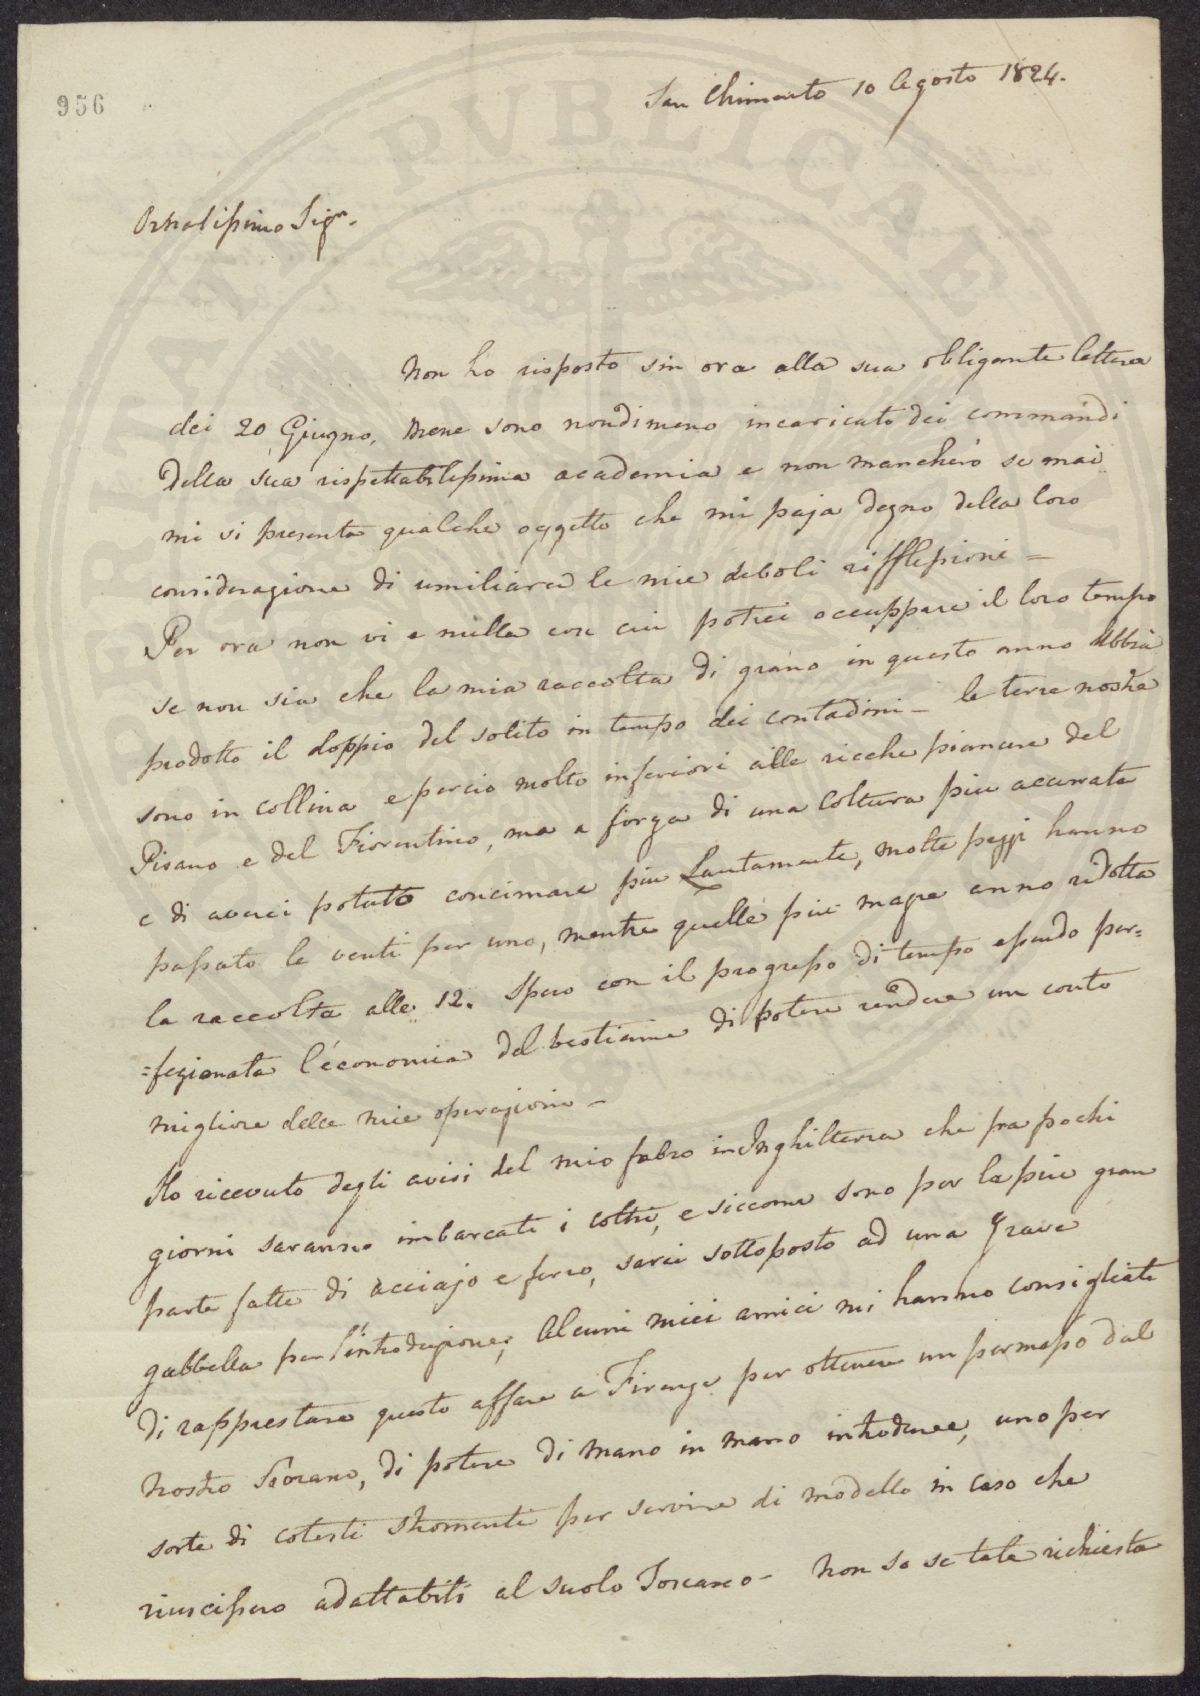 956
San Chimento 10 Agosto 1824.
Ornatissimo Sigr.
Non ho risposto sin ora alla sua obligante lettera
dei 20 Giugno, mene sono nondimeno incaricato dei commandi
della sua rispettabilissima academia e non mancherò se mai
mi si presenta qualche oggetto che mi paja degno della loro
considerazione di umiliarci le mie deboli rifflessioni =
Per ora non vi e nulla con cui potrei occuppare il loro tempo
se non sia che la mia raccolta di grano in questo anno abbia
prodotto il doppio del solito in tempo dei contadini - le terre nostre
sono in collina e percio molto inferiori alle ricche pianure del
Pisano e del Fiorentino, ma a forza di una Coltura piu accurata
e di averci potuto concimare piu Lautamente, molte pezzi hanno
passato le venti per uno, mentre quelle piu magre anno ridotta
la raccolta alle 12. Spero con il progresso di tempo essendo per=
=fezionata l'économia del bestiame di potere rendere un conto
migliore delle mie operazioni -
Ho ricevuto degli avisi del mio fabro in Inghilterra che fra pochi
giorni saranno imbarcati i coltri, e siccome sono per la piu gran
parte fatte di acciajo e ferro, sarei sottoposto ad una grave
gabbella per l'introduzione; Alcuni miei amici mi hanno consigliato
di rappresentare questo affare a Firenze per ottenere un permesso dal
Nostro Sovrano, di potere di mano in mano introdurre, uno per
sorte di cotesti stromenti per servire di modello in caso che
riuscissero adattabili al suolo Toscano - Non so se tale richiesta
PVBLICAE